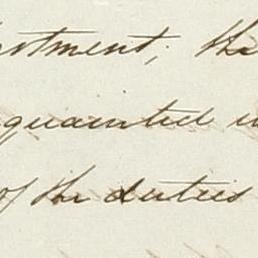 rtment; the
quainted w
of the duties